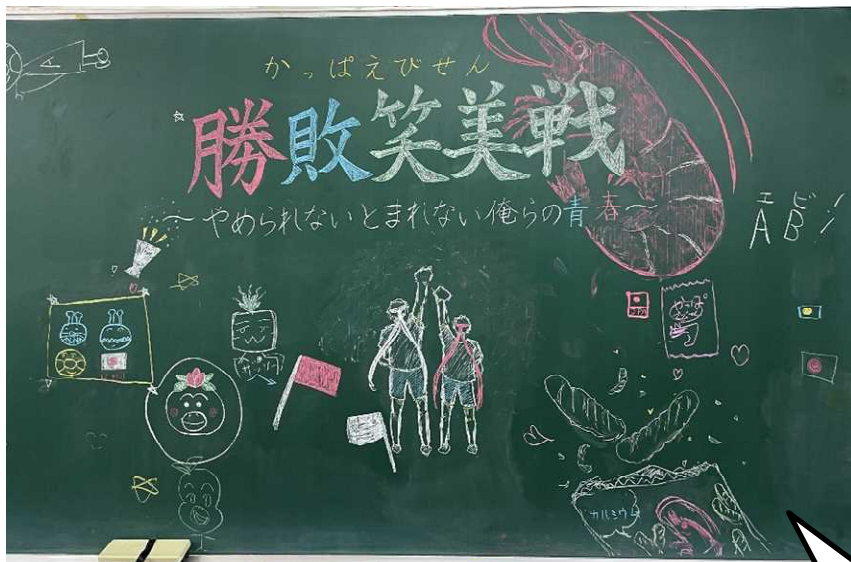 かっぱえびせん
勝敗笑美戦
～やめられないとまれない俺らの青春～
エビ
AB
カルシウム